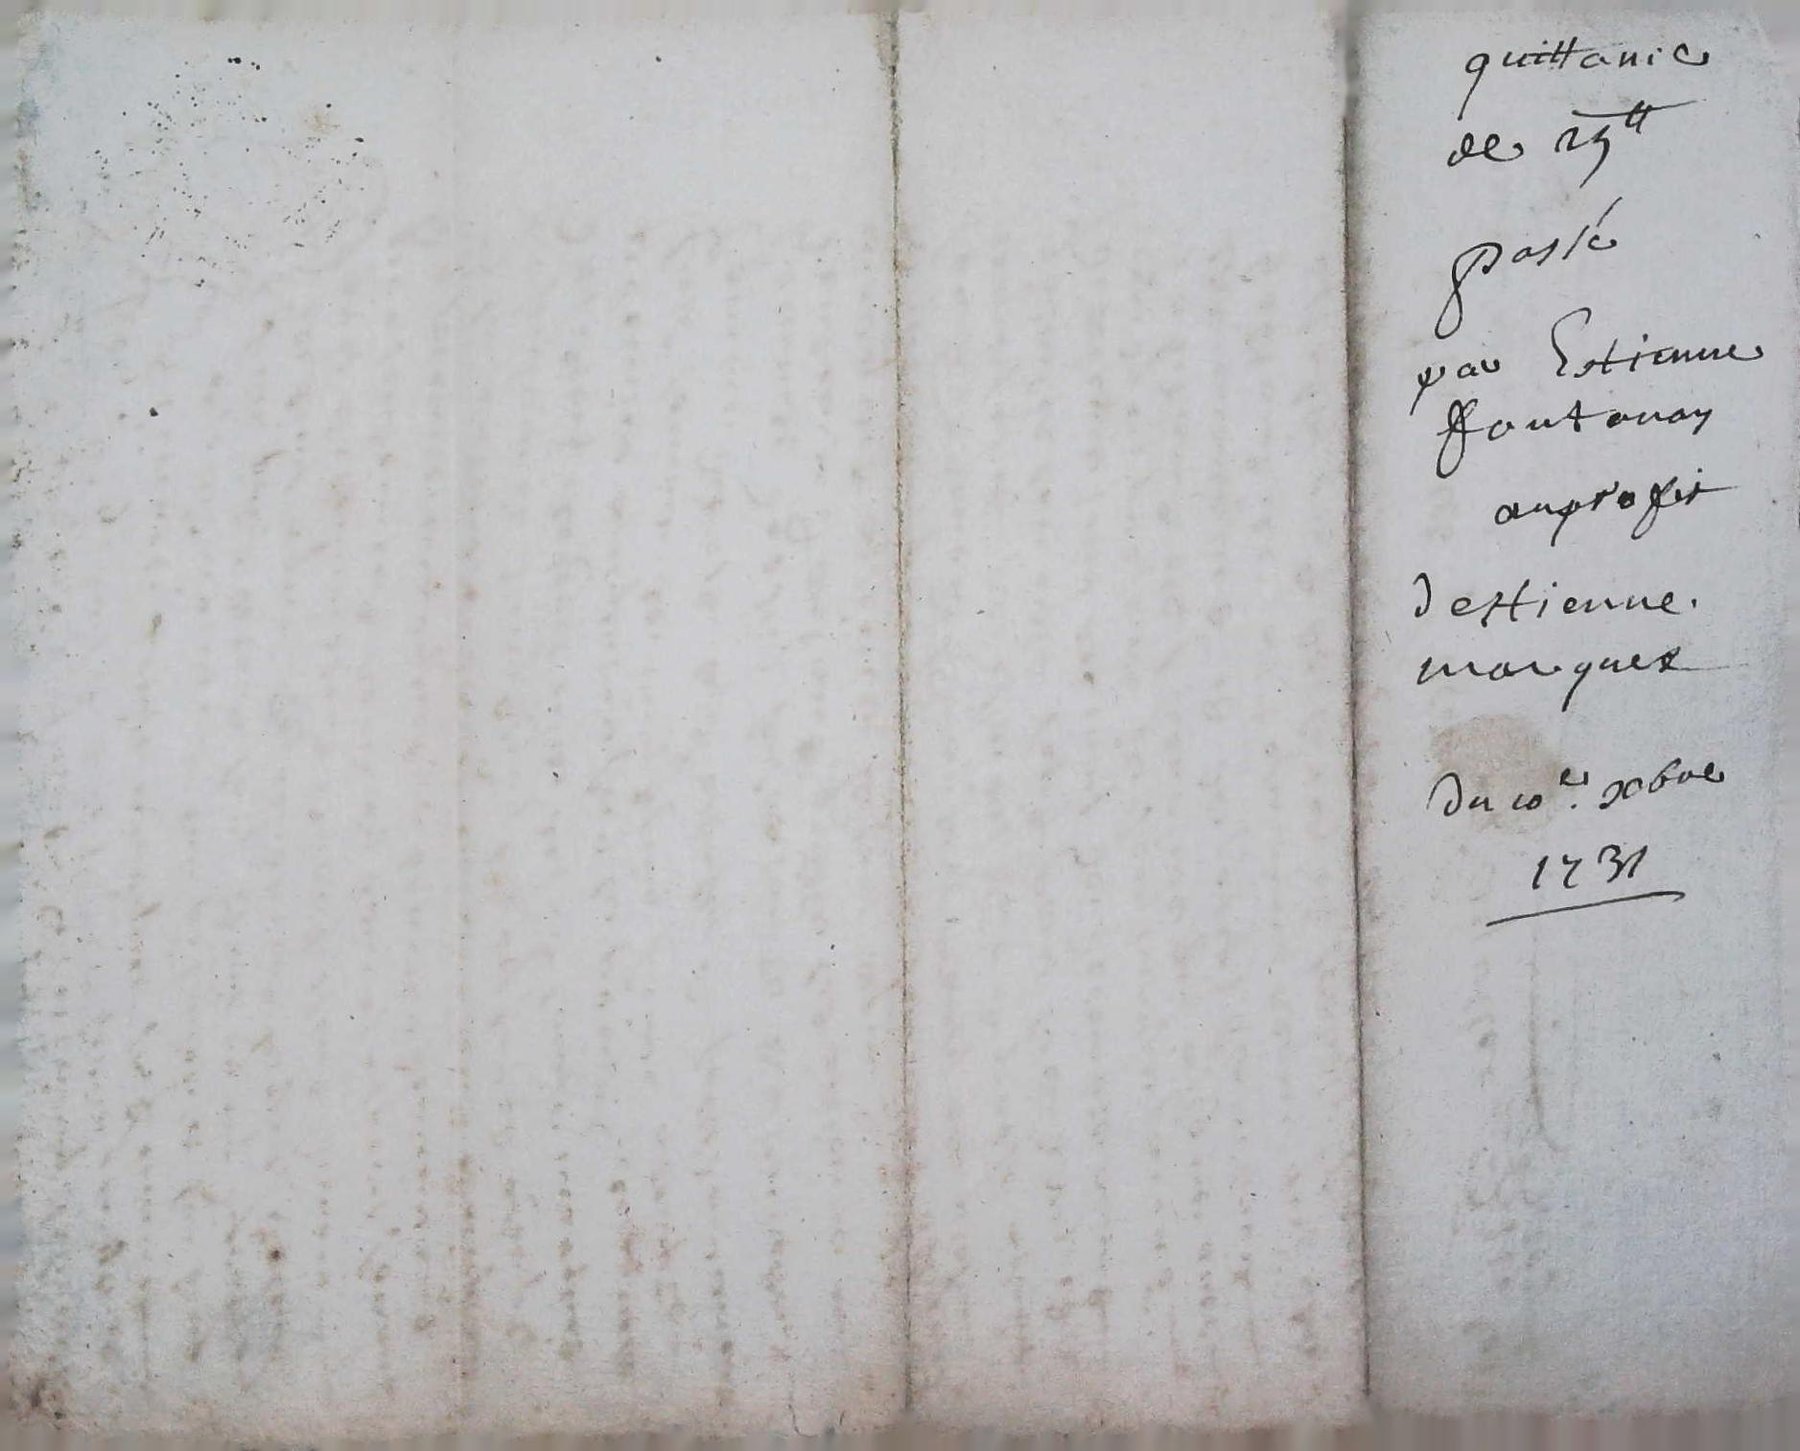 quittance
de 25ᵗᵗ
passé
par Estienne
ffontenay
auprofit
destienne.
marquez
Du 10ᵉ. xbre
1731